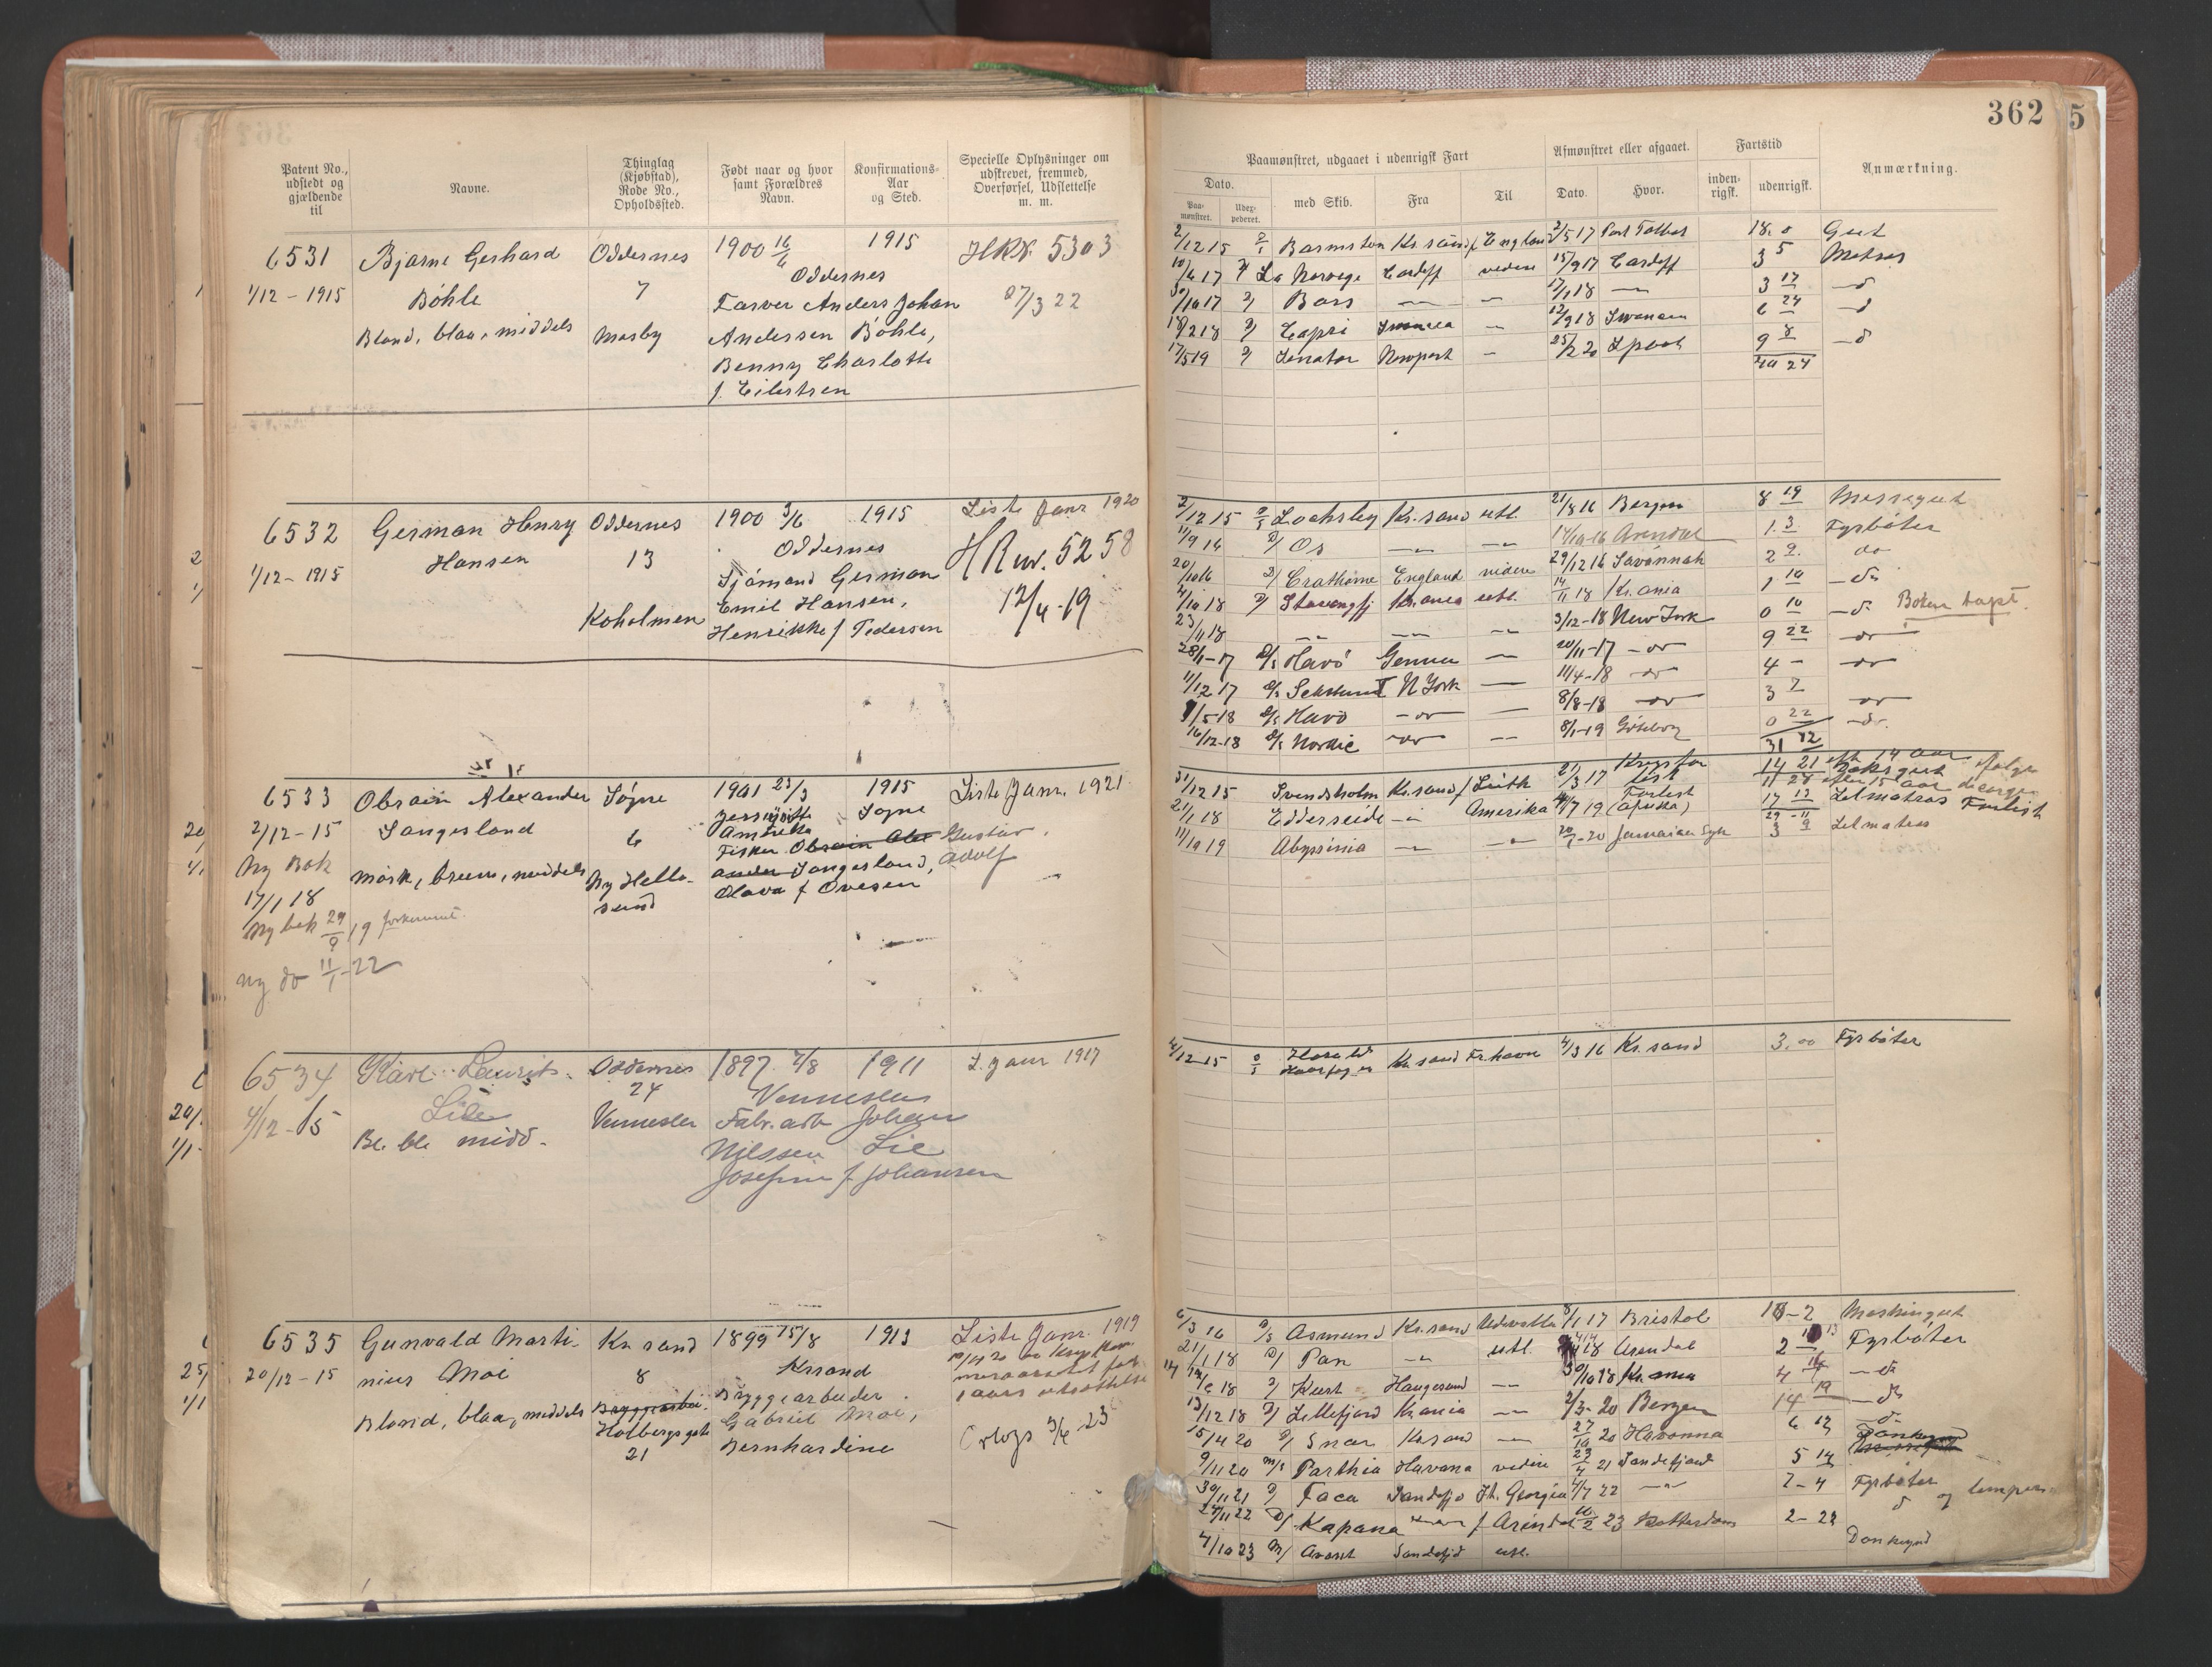 362
5
Patent No., udstedt og gjældende til
Navne.
Thinglag (Kjøbstad), Rode No., Opholdssted.
Født naar og hvor samt Forældres Navn.
Konfirmations-Aar og Sted.
Specielle Oplysninger om udskrevet, fremmed, Overførsel, Udslettelse m. m.
Paamønstret, udgaaet i udenrigsk Fart
Dato.
Paa-mønstret.
Udex-pederet.
med Skib.
Fra
Til
Afmønstret eller afgaaet.
Dato.
Hvor.
Fartstid
inden-rigsk.
udenrigsk.
Anmærkning.
6531 Bjarne Gerhard Oddernes 1900 16/6 1915 HRN. 5303
1/12 - 1915 Bøhle 7 Oddernes
Farver Anders Johan 27/3 22
Blond, blaa, middels Mosby Andersen Bøhle,
Benny Charlotte
f. Eilertsen
2/12 15 Barmston Kr.sand f England 2/5 17 Port Talbot 18.0 Gut
10/6 17 La Norvege Cardiff videre 15/9 17 Cardiff 3 5 Matros
30/10 17 Bass 17/1 18 3 17 - d
18/2 18 Capri Swansea 12/9 18 Swansea 6 24 - d
17/5 19 Senator Newport - 25/2 20 Lpool 9 8 - d
40 24
6532 German Henry Oddernes 1900 3/6 1915 Liste Janr 1920
1/12 - 1915 Hansen 13 Oddernes HRnr. 5258
Sjømand German
Koholmen Emil Hansen, 12/4 - 19
Henrikke f Pedersen
2/12 15 Lochsley Kr.sand utl. 21/8 16 Bergen 8 19 Messegut
11/9 16 Os 14/10-16 Arendal 1.3. Fyrbøter
20/10 16 Crathorne England videre 29/12 16 Savannah 2 9. do
4/10 18 Stavangfj Kr.ania utl. 14/11 18 Kr.ania 1 10 - do Boken tapt.
23/11 18 3/12-18 New York 0 10 - d
28/1-17 D/s Havø Genua 20/11-17 - do 9 22 do
11/12 17 D/s N York 11/4-18 do 4 - do
9/5-18 D/s Havø - do 8/8-18 do 3 7 do
16/12-18 D/s Nordic do 8/1-19 Göteborg 0 22 do.
31 12
6533 Obrain Alexander Søgne 1901 23/3 1915 Liste Janr. 1921
2/12-15 Langesland 6 Søgne
Amerika
Fisker Obrain Alex Gustav
ander Langesland, Adolf
Ny Bok mørk, brun, middels Ny Hellesund Olava f Ovesen
17/1 18
Ny bok 29/9 19 forkommet.
ny do 11/1-22
31/12 15 Svendsholm Kr.sand f Leith 21/3 17 Krigsforlist 14 21 eft 14 aar
21/1 18 Edderside Amerika 19 Forlist (Afrika) 17 13 Letmatros Forlist
11/10 19 Abyssinia 20/7-20 Jamaica Syk 3 9 Letmatros
6534 Karl Laurits Oddernes 1897 7/8 1911 L. Janr 1917
4/12-15 Lie 24 Vennesla
Bl. bl. midd. Vennesla Fabr.arb Johan
Nilssen Lie
Josefine f. Johansen
4/12-15 Harald Haarfager Kr.sand Fr.havn 4/3 16 Kr.sand 3.00 Fyrbøter
6535 Gunvald Marti- Kr.sand 1899 15/8 1913 Liste Janr. 1919
20/12-15 nius Moi 8 Krsand
Bryggearbeider
Blond, blaa, middels Holbergsgate Gabriel Moi,
21 Bernhardine Orlogs 3/4 23
6/3 16 Asmund Kr.sand Udevalla 8/1 17 Bristol 18-2 Maskingut
21/1 18 Pan utl. 18 Arendal 2 13 Fyrbøter
18 Kurt Haugesund 30/10 18 Kr.ania 4 - d
13/12 18 Lillefjord Kr.ania 2/3-20 Bergen 14 19 - d
15/4 20 Snar Kr.sand 27/10 20 Havanna 6 12 - d
9/11 20 M/s Parthia Havana videre 23/4 21 Sandefjord 5 14 Donkeymd
30/11 21 Faca Sandefjo St. Georgia 4/7 22 7-4 Fyrbøter
24/11 22 Kapana f Arendal 10/2 23 Rotterdam 2-23 d og lemper
4/10 23 Sandefjd utl. Donkeymd